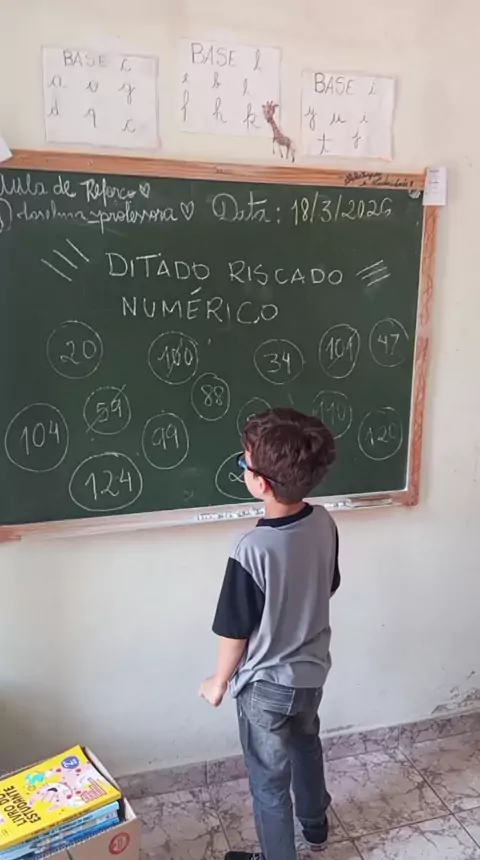 BASE c
a o g
d q c
BASE l
e b l
f h k
BASE i
y u i
t j
Aula de Reforço ♡
professora ♡ Data: 18/3/2026
DITADO RISCADO
NUMÉRICO
20 100 34 101 47
59 88 110
104 99 120
124
LIVRO DO
ESTUDANTE